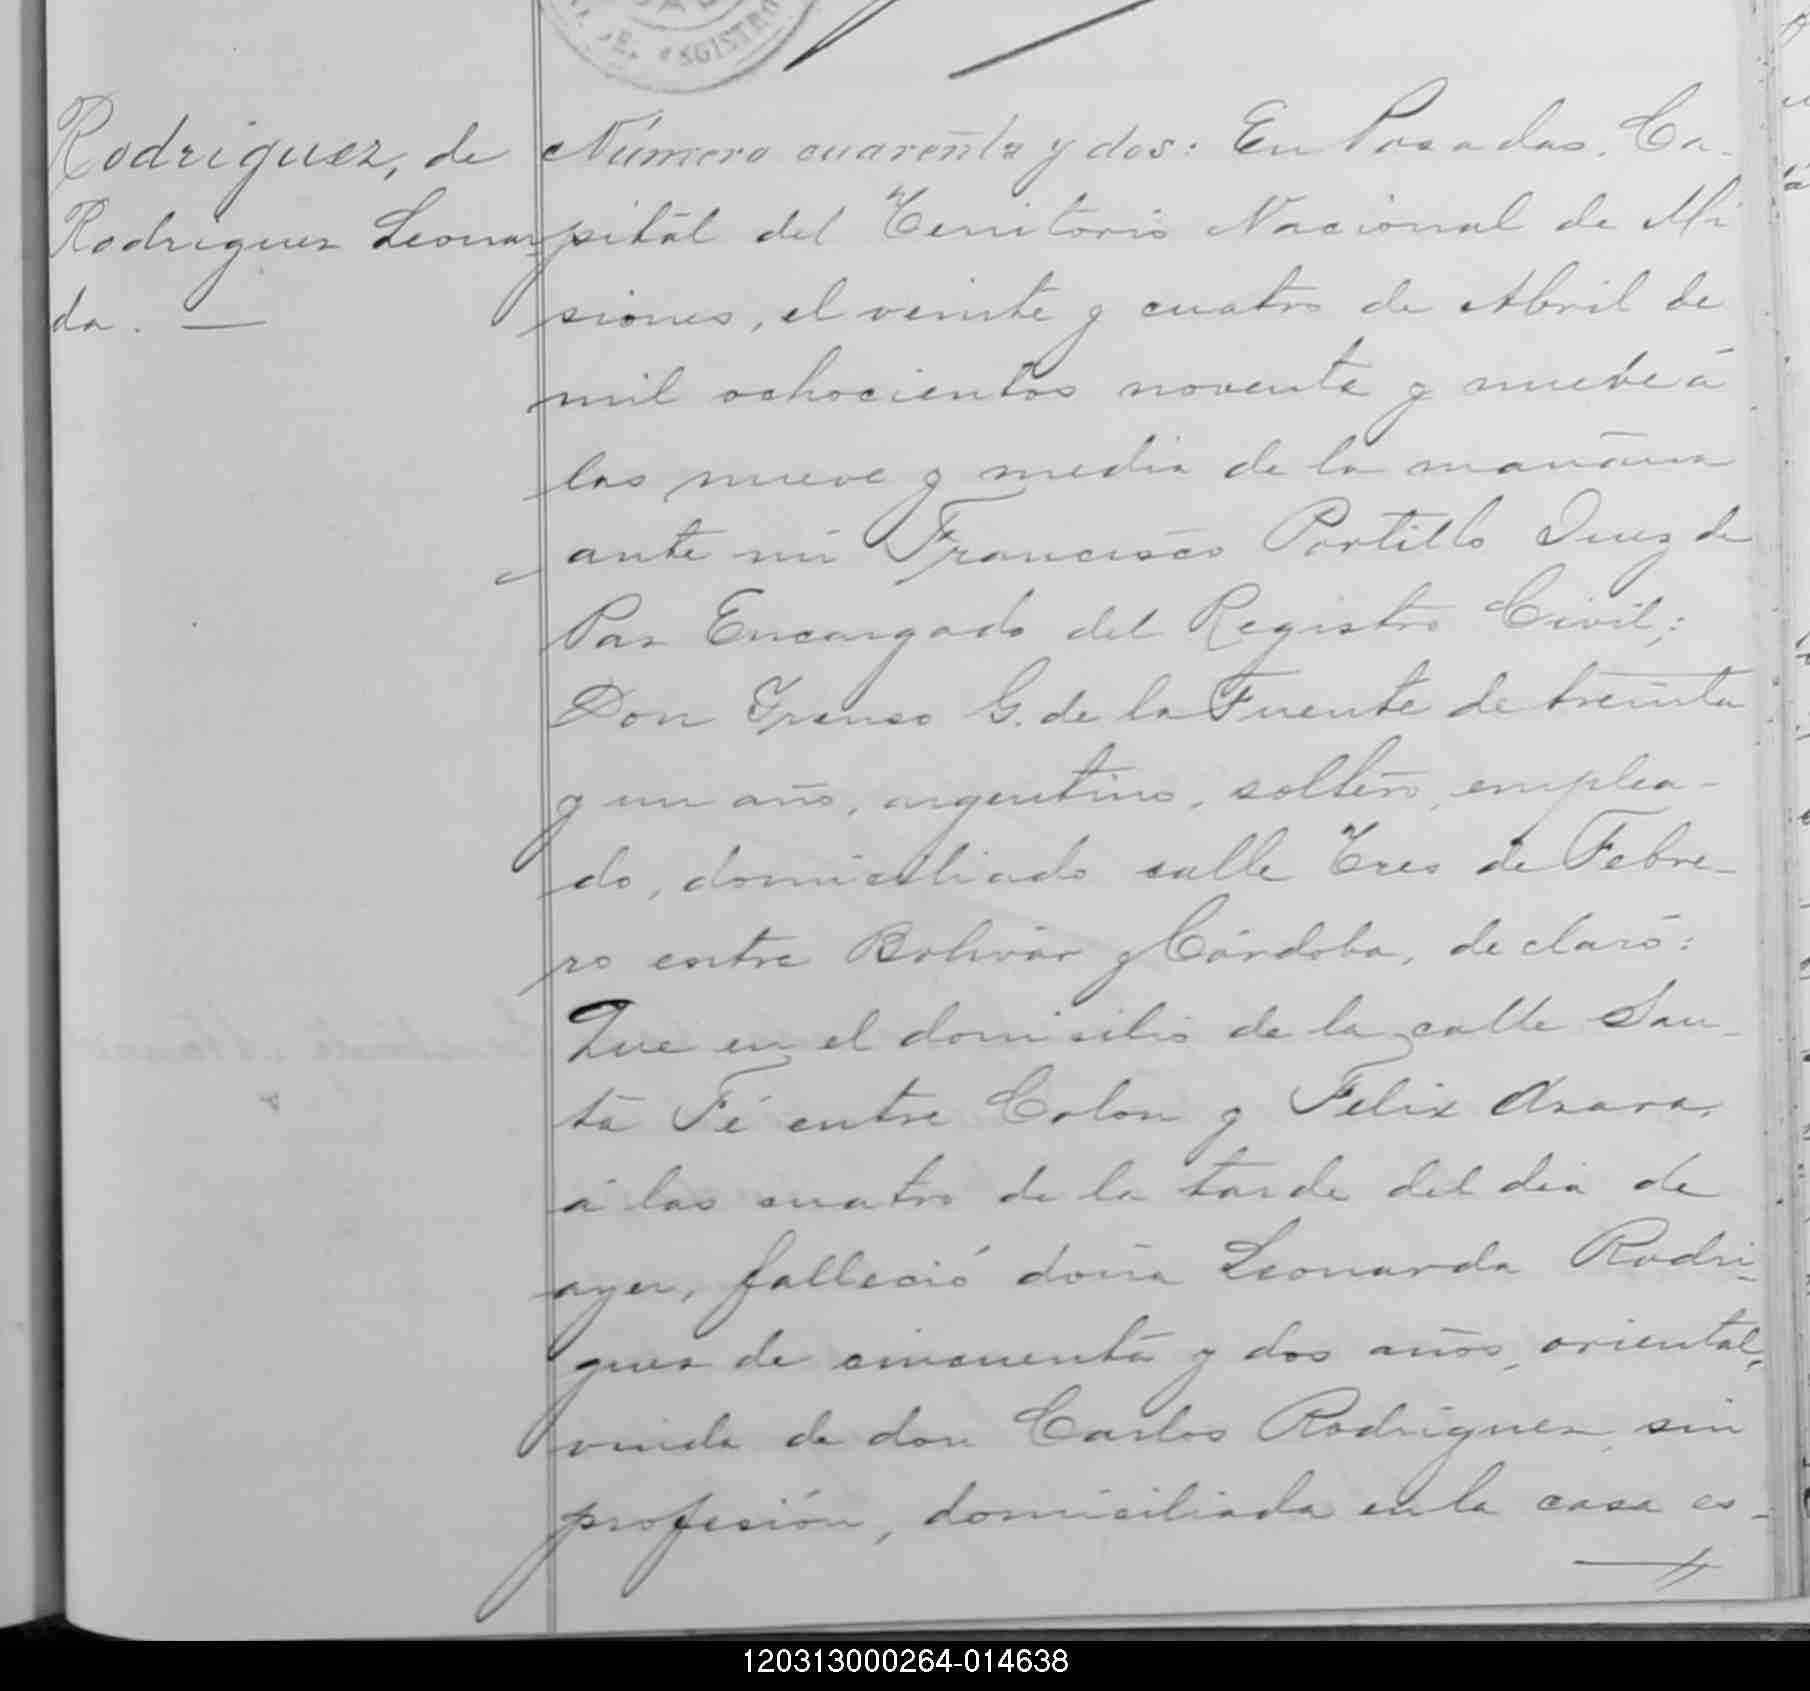 REGISTRO
Rodriguez, de
Rodriguez Leonar
da. —
Número cuarenta y dos: En Posadas, Ca-
pital del Territorio Nacional de Mi
siones, el veinte y cuatro de Abril de
mil ochocientos noventa y nueve á
las nueve y media de la mañana
ante mi Francisco Portillo Juez de
Paz Encargado del Registro Civil;
Don G. de la Fuente de treinta
y un año, argentino, soltero, emplea-
do, domiciliado calle Tres de Febre-
ro entre Bolivar y Córdoba, declaró:
Que en el domicilio de la calle San-
ta Fé entre Colon y Felix Azara,
á las cuatro de la tarde del dia de
ayer, falleció doña Leonarda Rodri-
guez de cincuenta y dos años, oriental,
viuda de don Carlos Rodriguez, sin
profesión, domiciliada en la casa es-
120313000264-014638